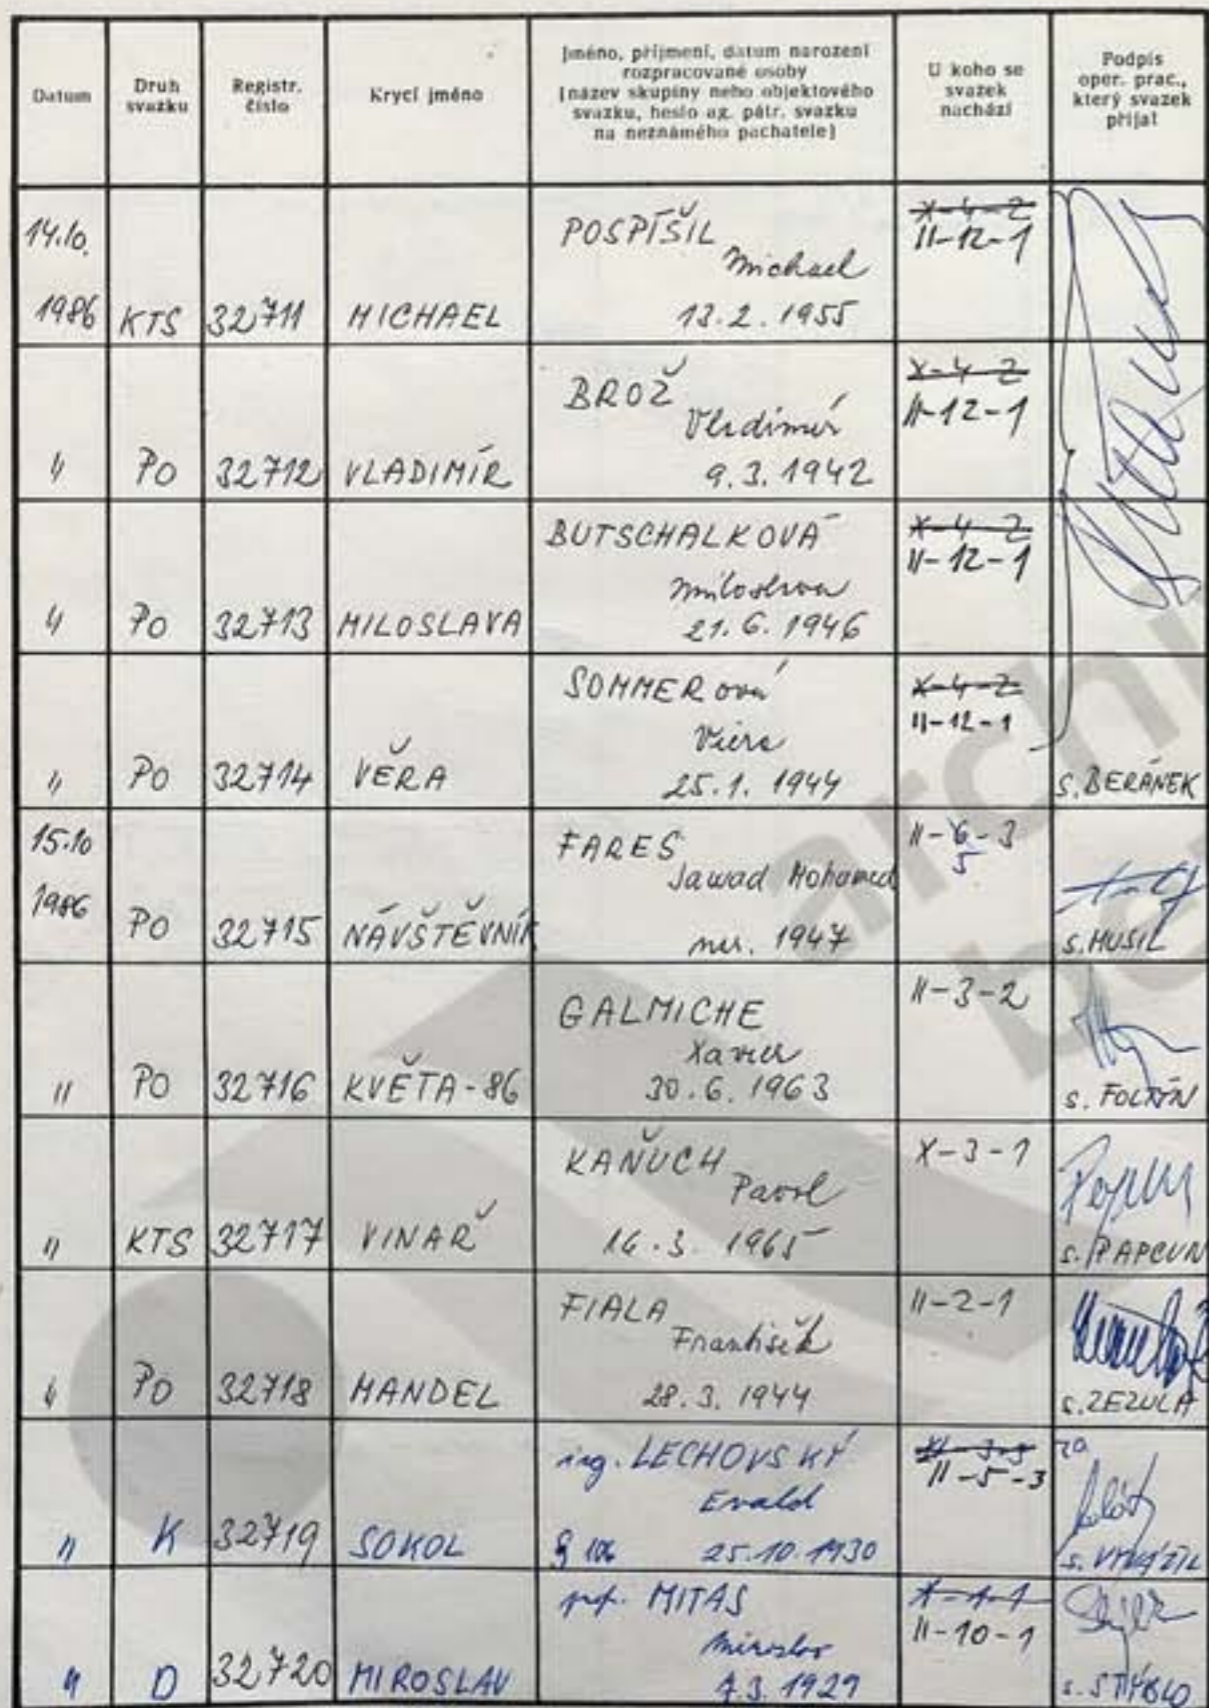 Datum
Druh
svazku
Registr.
číslo
Krycí jméno
Jméno, příjmení, datum narození
rozpracované osoby
(název skupiny nebo objektového
svazku, heslo ag. pátr. svazku
na neznámého pachatele)
U koho se
svazek
nachází
Podpis
oper. prac.,
který svazek
přijal
14.10.
1986 KTS 32711 MICHAEL
POSPÍŠIL
Michael
13.2.1955
X-4-2
II-12-1
" PO 32712 VLADIMÍR
BROŽ
Vladimír
9.3.1942
X-4-2
II-12-1
" PO 32713 MILOSLAVA
BUTSCHALKOVÁ
Miloslava
21.6.1946
X-4-2
II-12-1
" PO 32714 VĚRA
SOMMERová
Viera
25.1.1944
X-4-2
II-12-1
s. BERÁNEK
15.10
1986 PO 32715 NÁVŠTĚVNÍK
FARES
Jawad Mohamed
nar. 1947
II-6-3
5
s. MUSIL
" PO 32716 KVĚTA-86
GALMICHE
Xavier
30.6.1963
II-3-2
s. FOLTÝN
" KTS 32717 VINAŘ
KAŇUCH
Pavol
16.3.1965
X-3-1
s. PAPCUN
" PO 32718 MANDEL
FIALA
František
28.3.1944
II-2-1
s. ZEZULA
" K 32719 SOKOL
ing. LECHOVSKÝ
Evald
§ 106 25.10.1930
II-5-3
za
" D 32720 MIROSLAV
MITAS
Miroslav
7.3.1929
X-1-1
II-10-1